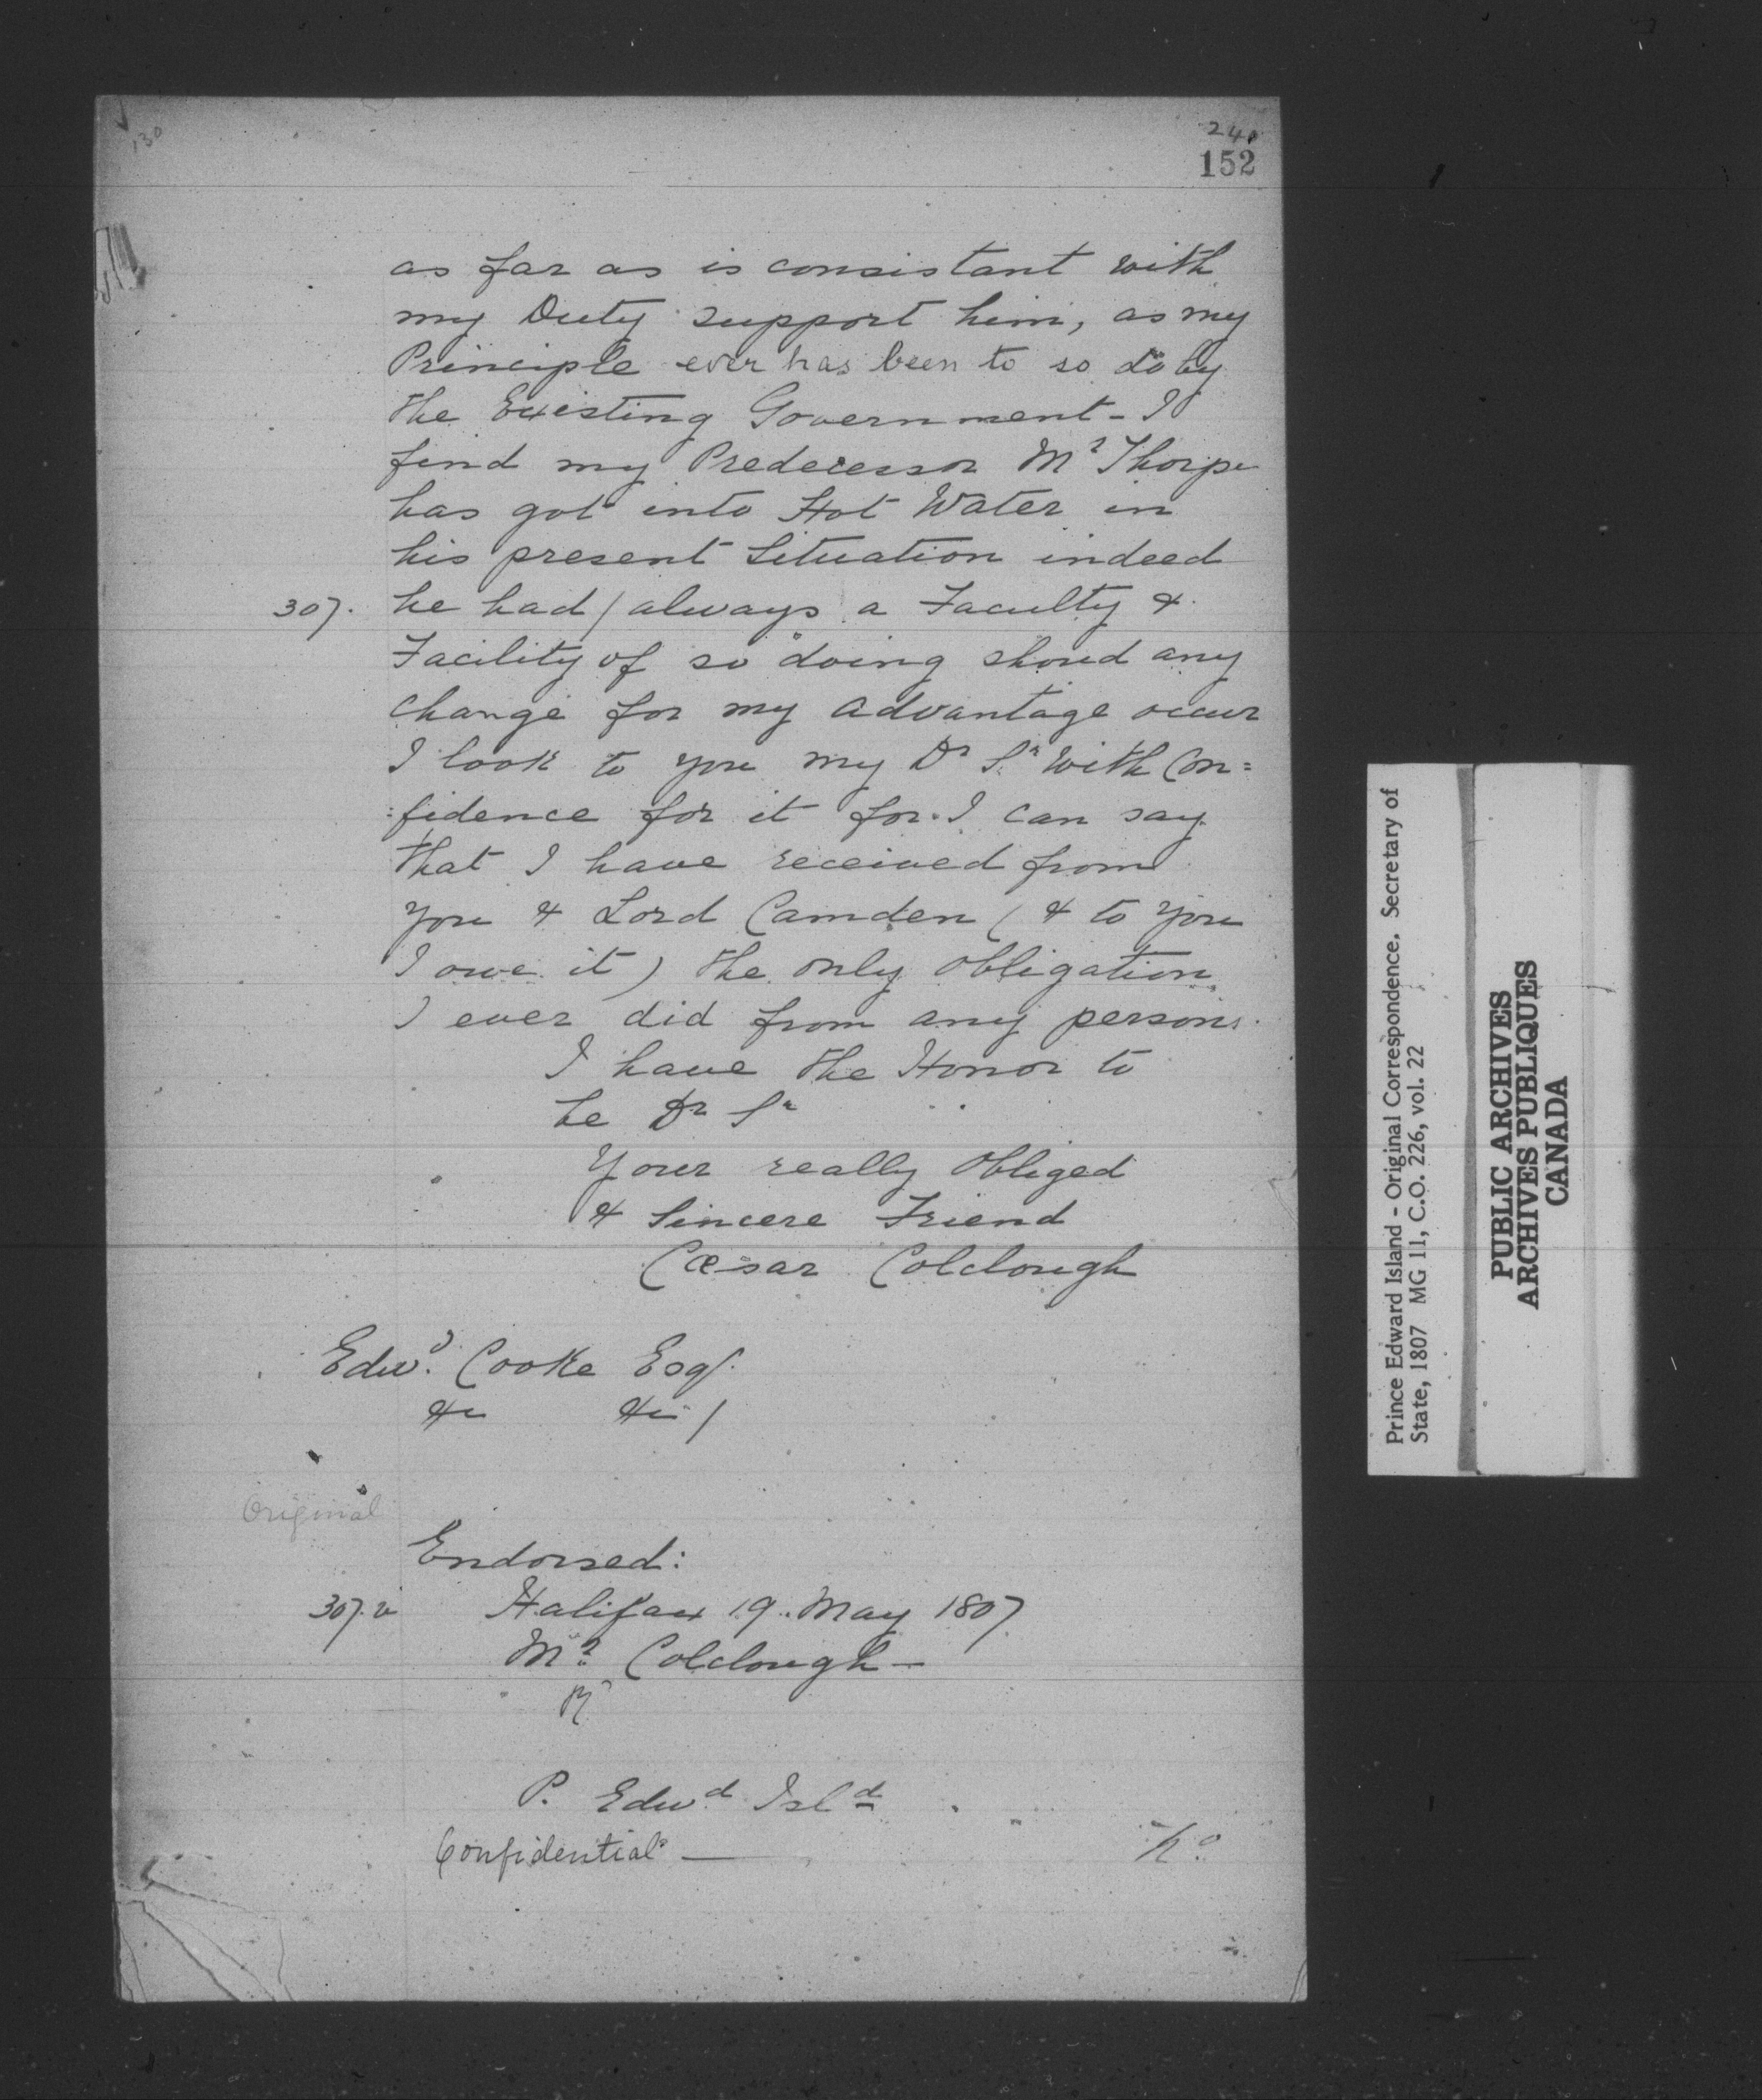 130
240
152
as far as is consistant with
my Duty support him, as my
Principle ever has been to so do by
the Existing Government - I
find my Predecessor Mr Thorpe
has got into Hot Water in
his present Situation indeed
307. he had / always a Faculty &
Facility of so doing shoud any
change for my advantage occur
I look to you my Dr Sr with Con=
=fidence for it for I can say
that I have received from
you & Lord Camden ( & to you
I owe it ) the only obligation
I ever did from any person.
I have the Honor to
be Dr Sr
Your really Obliged
& Sincere Friend
Cæsar Colclough
Edwd. Cooke Esqr.
&c &c /
Original
Endorsed:
307.v Halifax 19. May 1807.
Mr. Colclough -
P. Edwd Isld
Confidential —
Prince Edward Island - Original Correspondence, Secretary of
State, 1807 MG 11, C.O. 226, vol. 22
PUBLIC ARCHIVES
ARCHIVES PUBLIQUES
CANADA